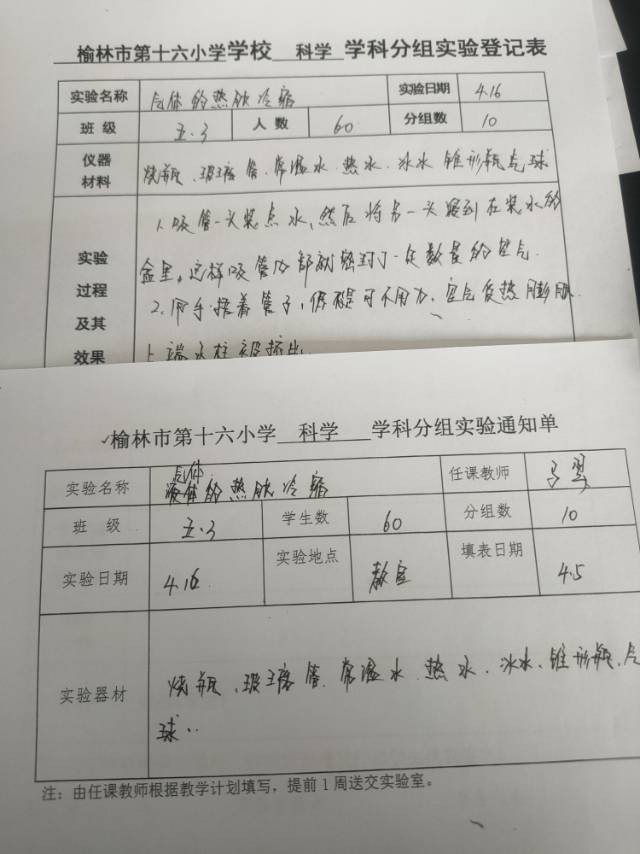 榆林市第十六小学学校 科学 学科分组实验登记表
实验名称 气体的热胀冷缩 实验日期 4.16
班 级 五.3 人 数 60 分组数 10
仪器材料 烧瓶、玻璃管、常温水、热水、冰水 锥形瓶气球
实验过程及其效果
1、吸管一头装点水,然后将另一头
在装水的
盒里。这样吸管内部就密封了一定数量的空气.
2、用手接着管子,
可不用力、空气受热膨胀
上端水柱被挤出
榆林市第十六小学 科学 学科分组实验通知单
实验名称 气体的热胀冷缩 任课教师
班 级 五.3 学生数 60 分组数 10
实验日期 4.16 实验地点 教室 填表日期 4.5
实验器材 烧瓶、玻璃管、常温水、热水、冰水、锥形瓶、气
球..
注:由任课教师根据教学计划填写,提前1周送交实验室。